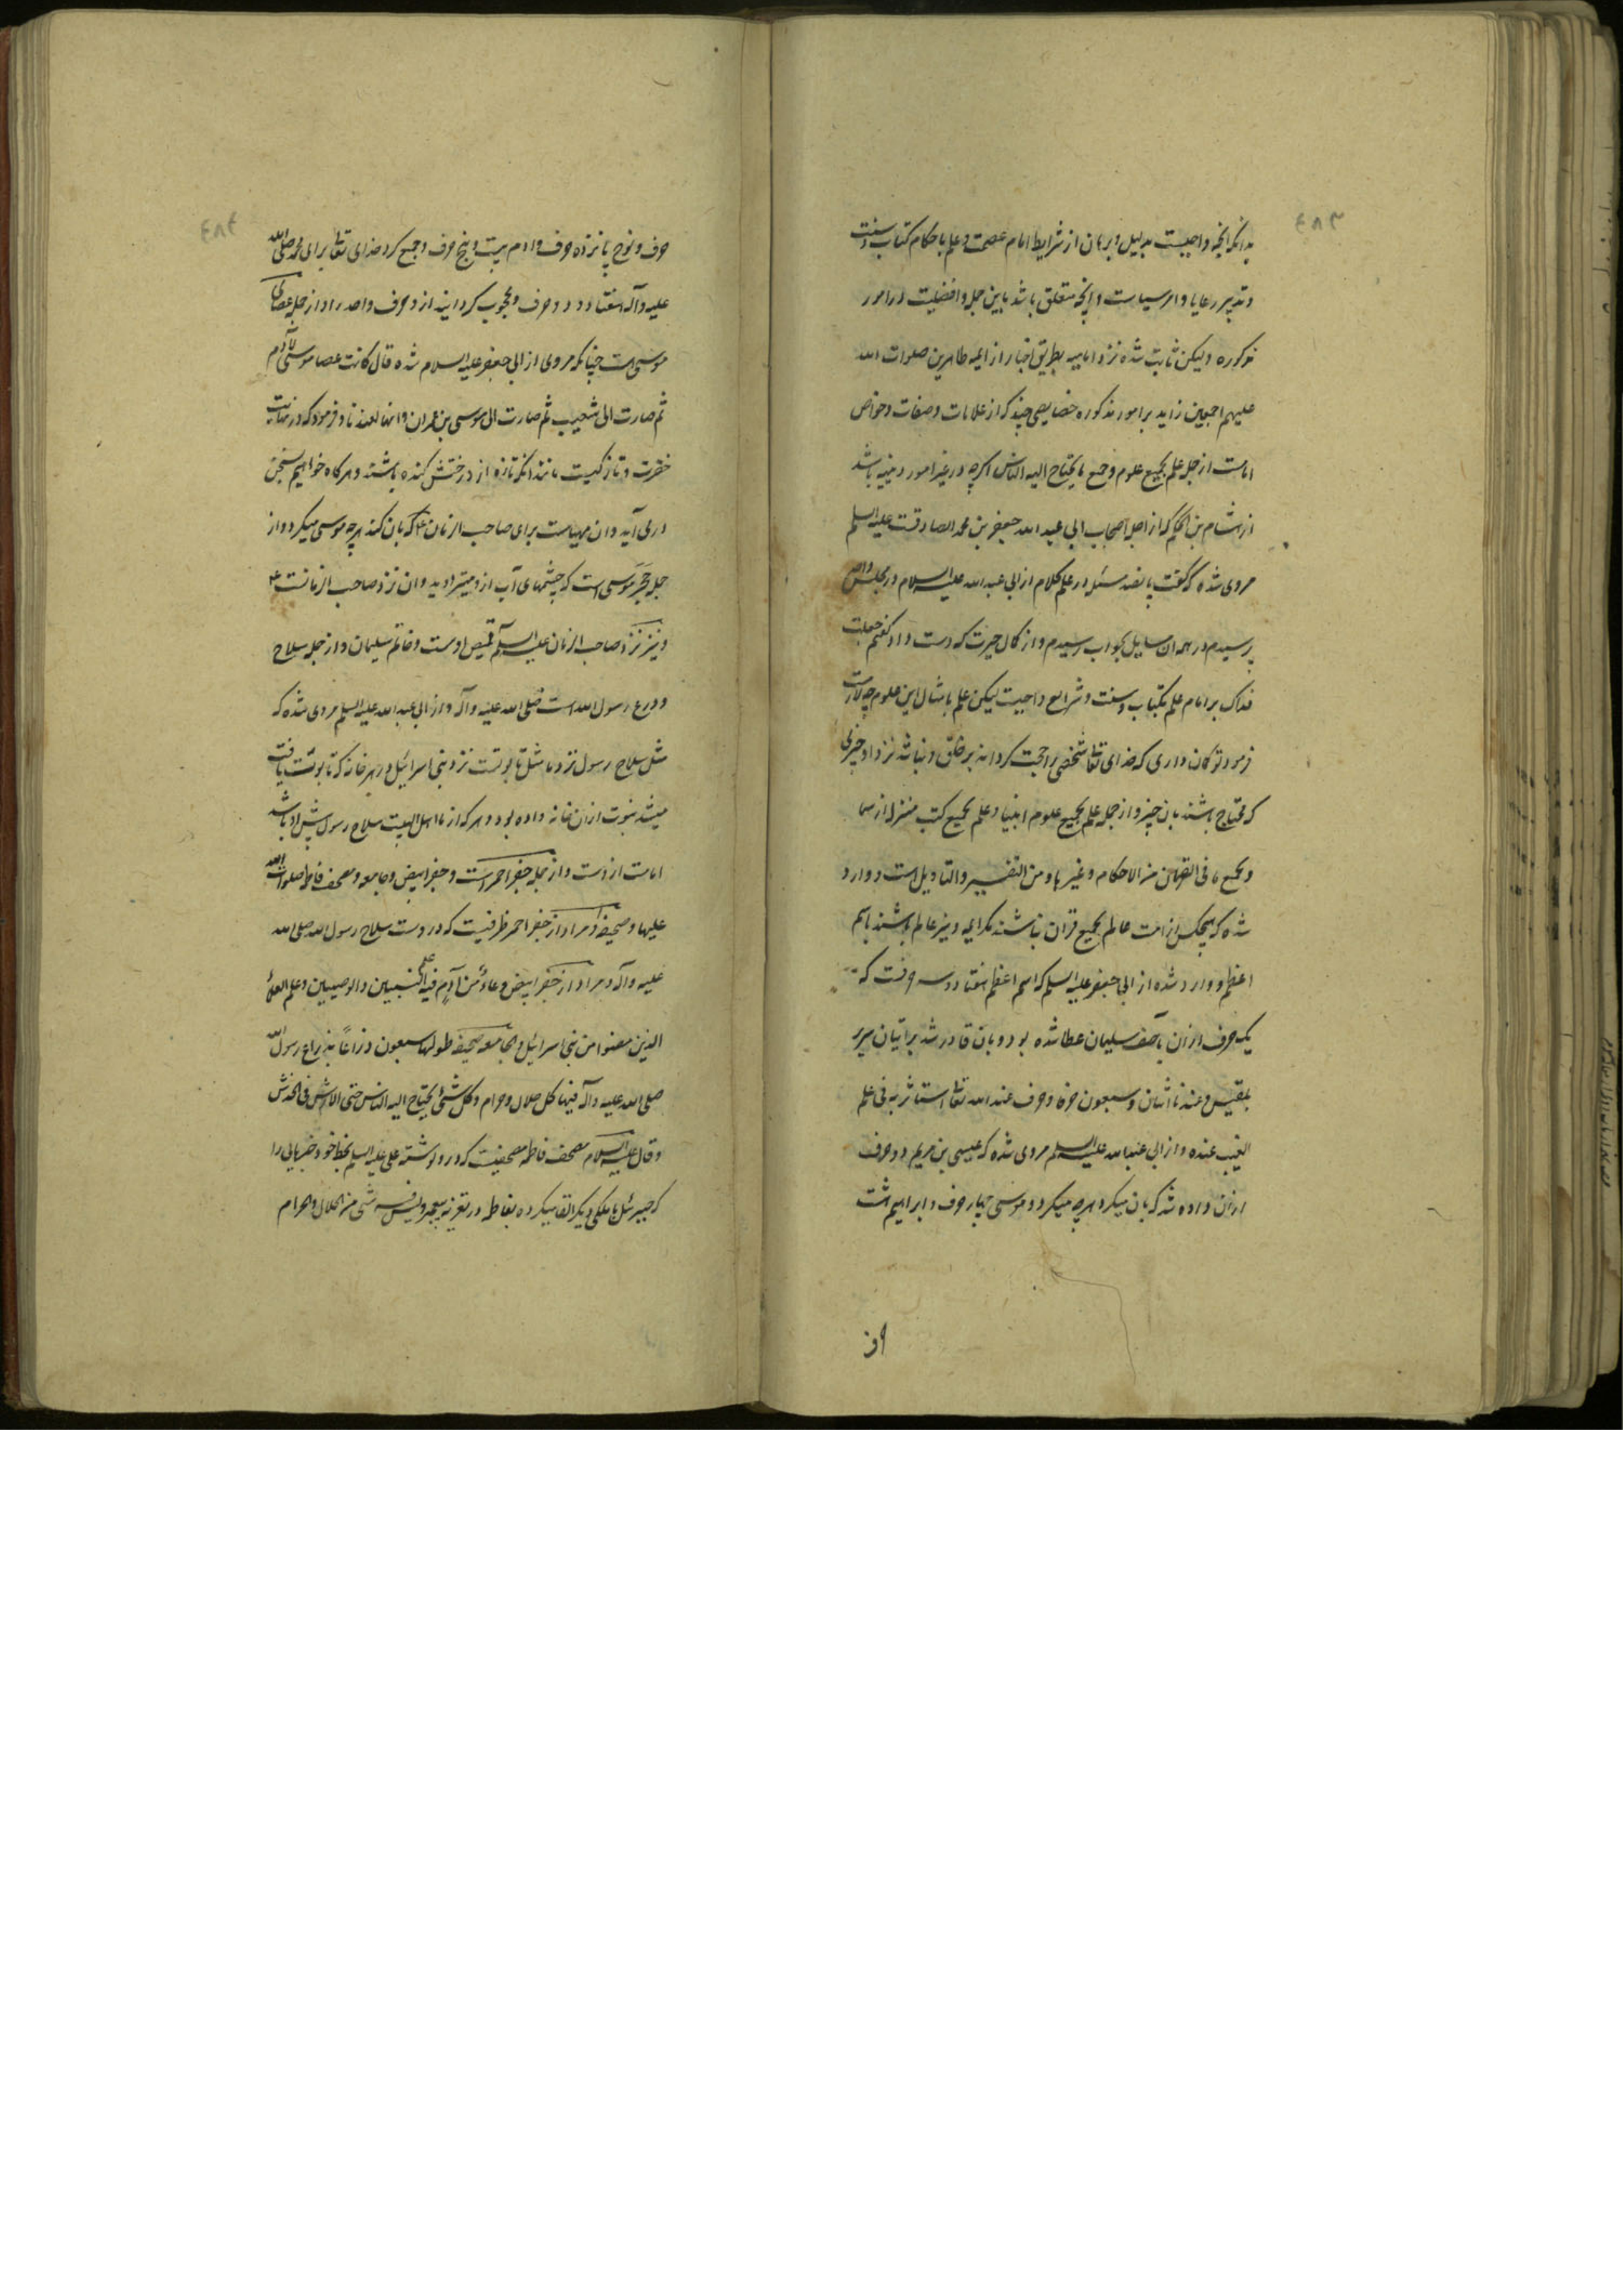 ٤٨٣
بدانکه آنچه واجبست بدلیل و برهان از شرایط امام عصمت و علم باحکام کتاب و سنت
و تدبیر رعایا و امر سیاست و آنچه متعلق باشد باین جمله و افضلیت در امور
مذکوره ولیکن ثابت شده نزد امامیه بطریق اخبار از ایمه طاهرین صلوات الله
علیهم اجمعین زاید بر امور مذکوره خصایصی چند که از علامات و صفات و خواص
امامت از جمله علم بجمیع علوم و جمیع ما یحتاج الیه الناس اگرچه در غیر امور دینیه باشد
از هشام بن الحکم که از اجل اصحاب ابی عبد الله جعفر بن محمد الصادقست علیه السلم
مروی شده که گفت پانصد مسئله در علم کلام از ابی عبد الله علیه السلام در مجلس
پرسیدم در همه ان مسایل بجواب رسیدم و از کمال حیرت که دست داد گفتم جعلت
فداک بر امام علم بکتاب و سنت و شرایع واجبست لیکن علم بامثال این علوم چه لازمست
فرمود تو گمان داری که خدای تعا شخصی را حجت گرداند بر خلق و نباشد نزد او چیزی
که محتاج باشند بان چیز و از جمله علم بجمیع علوم انبیا و علم بجمیع کتب منزله از سما
و بجمیع ما فی القران من الاحکام و غیرها و من التفسیر و التاویل است و وارد
شده که هیچکس از امت عالم بجمیع قران نباشند مگر ایمه و نیز عالم باشند باسم
اعظم و وارد شده از ابی جعفر علیه السلم که اسم اعظم هفتاد و سه حرفست که
یک حرف از ان بآصف سلیمان عطا شده بود و بان قادر شد بر اتیان سریر
بلقیس و عندنا اثنان و سبعون حرفا و حرف عند الله تعا استاثر به فی علم
الغیب عنده و از ابی عبد الله علیه السلم مروی شده که عیسی بن مریم دو حرف
از ان داده شد که بان میکرد هرچه میکرد و موسی چهار حرف و ابراهیم هشت
٤٨٤
حرف و نوح پانزده حرف و ادم بیست و پنج حرف و جمع کرد خدای تعا برای محمد صلی الله
علیه و آله هفتاد و دو حرف و محجوب گردانید از و حرف واحد را و از جمله عصای
موسی است چنانکه مروی از ابی جعفر علیه السلام شده قال کانت عصا موسی لآدم
ثم صارت الی شعیب ثم صارت الی موسی بن عمران و انها لعندنا و فرمود که در نهایت
خضرت و تازگیست مانند انکه تازه از درختش کنده باشند و هرگاه خواهیم بسخن
در می آید و ان مهیاست برای صاحب الزمان ع که بان کند هرچه موسی میکرد و از
جمله حجر موسی است که چشمهای آب از و میتراوید و ان نزد صاحب الزمانست ع
و نیز نزد صاحب الزمان علیه السلم قمیص اوست و خاتم سلیمان و از جمله سلاح
و درع رسول الله است صلی الله علیه و آله و از ابی عبد الله علیه السلم مروی شده که
مثل سلاح رسول نزد ما مثل تابوتست نزد بنی اسرائیل در هر خانه که تابوت یافت
میشد نبوت از ان خانه داده بود و هرکه از ما اهل البیت سلاح رسول پیش او باشد
امامت از وست و از جمله جفر احمر است و جفر ابیض و جامعه و مصحف فاطمه صلوات الله
علیها و صحیفه و مراد از جفر احمر ظرفیست که در وست سلاح رسول الله صلی الله
علیه و آله و مراد از جفر ابیض وعاء من آدم فیه علم النبیین و الوصیین و علم العلماء
الذین مضوا من بنی اسرائیل و الجامعه صحیفه طولها سبعون ذراعاً بذراع رسول الله
صلی الله علیه و آله فیها کل حلال و حرام و کل شئ یحتاج الیه الناس حتی الارش فی الخدش
و قال علیه السلام مصحف فاطمه مصحفیست که در و نوشته علی علیه السلم بخط خود خبرهایی را
که جبرئیل یا ملکی دیگر القا میکرده بفاطمه در تعزیه پیغمبر و لیس فیه شئ من الحلال و الحرام